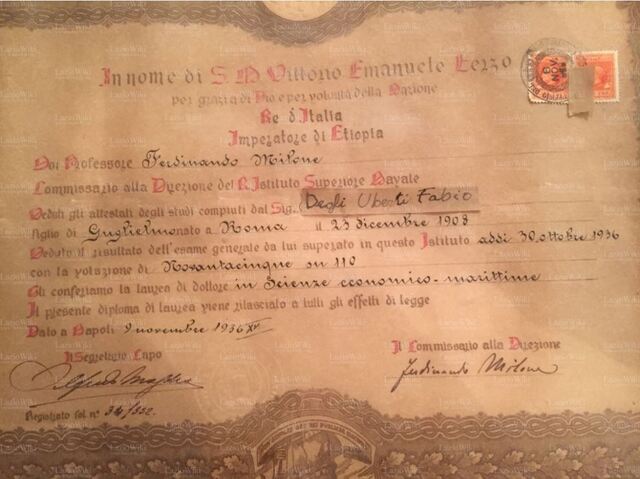 In nome di S. M. Vittorio Emanuele Terzo
per grazia di Dio e per volontà della Nazione
Re d'Italia
Imperatore di Etiopia
Noi Professore Ferdinando Milone
Commissario alla Direzione del R. Istituto Superiore Navale
Veduti gli attestati degli studi compiuti dal Sig. Degli Uberti Fabio
figlio di Guglielmo nato a Roma il 23 dicembre 1908
Veduto il risultato dell'esame generale da lui superato in questo Istituto addì 30 ottobre 1936
con la votazione di Novantacinque su 110
Gli conferiamo la laurea di dottore in Scienze economico-marittime
Il presente diploma di laurea viene rilasciato a tutti gli effetti di legge
Dato a Napoli 9 novembre 1936 XV
Il Segretario Capo
Il Commissario alla Direzione
Ferdinando Milone
Registrato fol. n°
NOV
LazioWiki